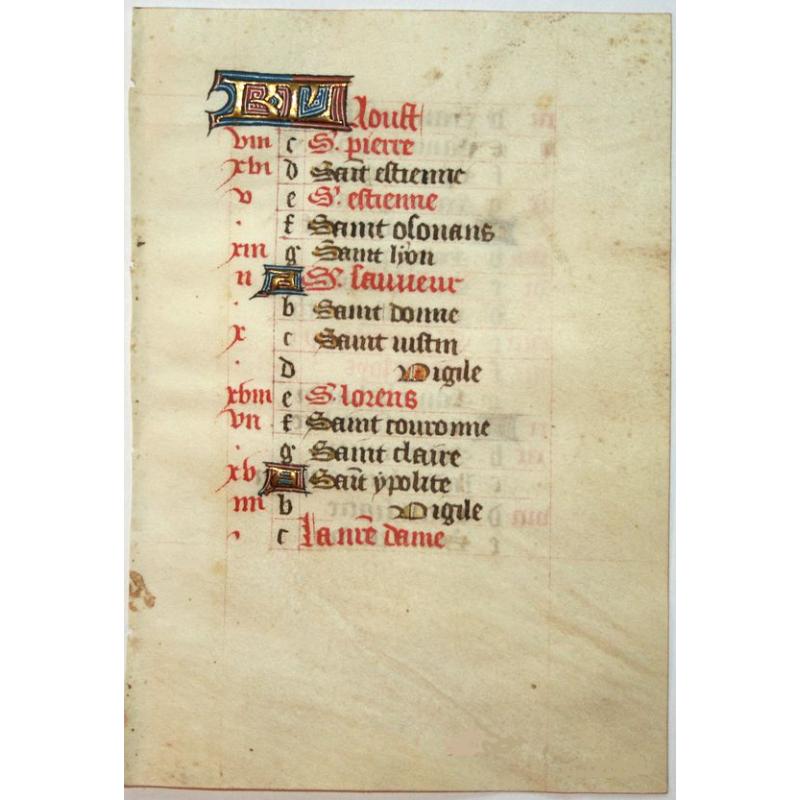 KL Aoust
viii c S. pierre
xvi d Saīt estienne
v e S. estienne
. f Saint osouans
xiii g Saint lyon
ii A S. sauueur
b Saint donne
x c Saint iustin
. d Vigile
xviii e S. lorens
vii f Saint couronne
. g Saint claire
xv A Saīt ypolite
iiii b Vigile
. c La nr̄e dame